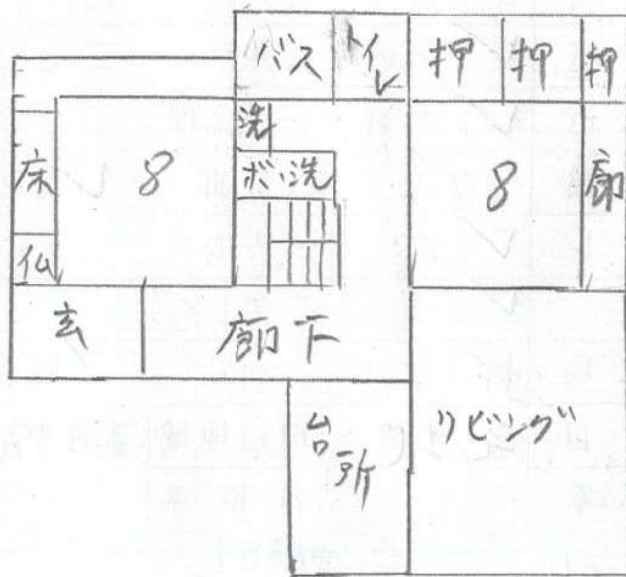 バス
トイレ
押
押
押
洗
床
8
ボ洗
8
廊
仏
玄
廊下
台所
リビング